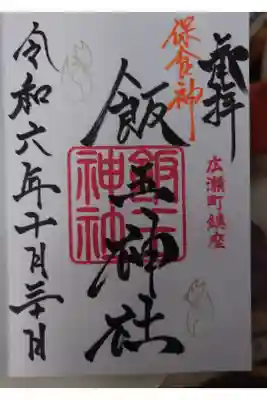 奉拝
広瀬町鎮座
保食神
飯玉神社
飯玉神社
令和六年十月三十日